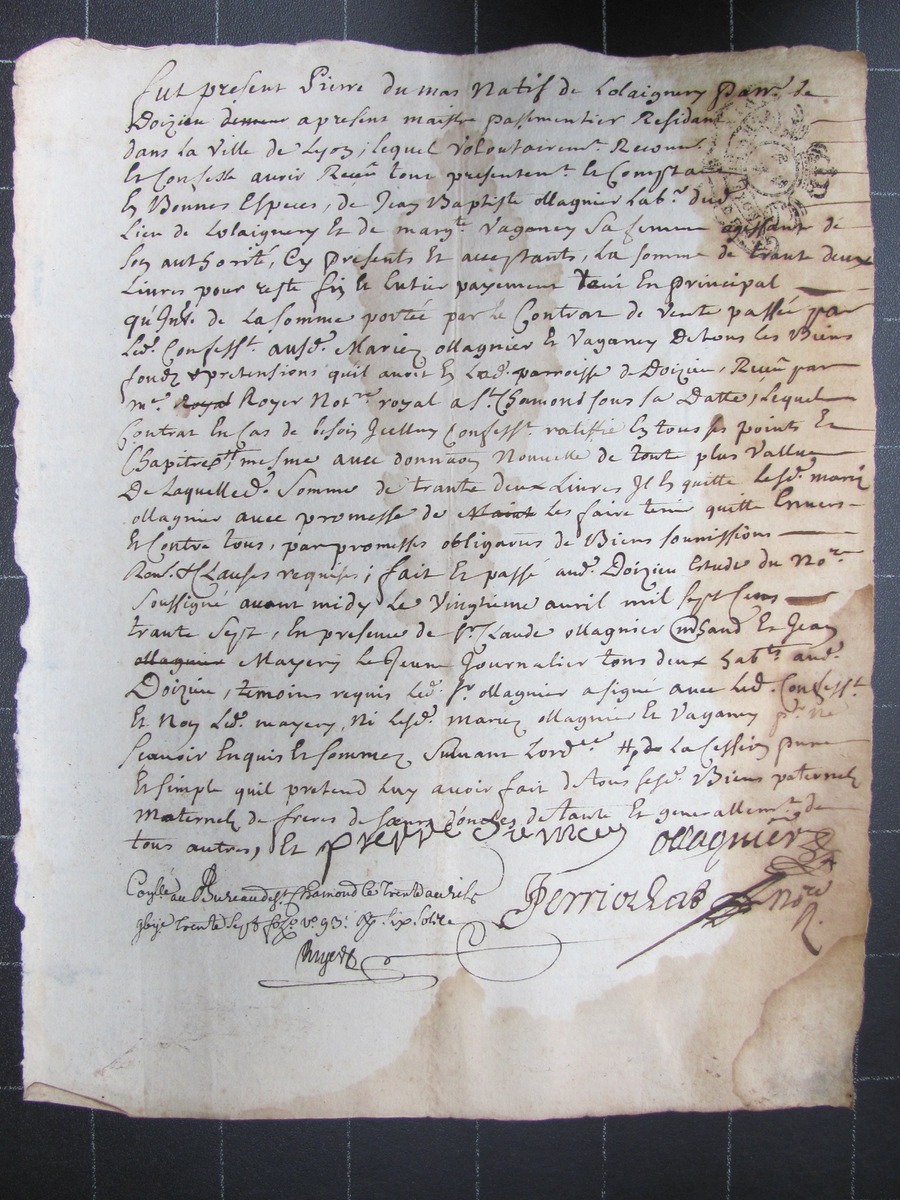 fut present Pierre du mas Natif de Lolaignery parr.e de
Doizieu demeur apresent maistre passementier Residant
dans la ville de Lyon, lequel volontairem.t Reconn
Et Confesse avoir Receu tout presentem.t Et Comptant
En Bonnes Especes, de Jean Baptiste ollagnier Lab.r dud
Lieu de Lolaignery Et de marg.te Vaganey Sa femme agissante de
son authorité, Cy presents Et acceptants, La somme de trante deux
Livres pour reste fin Et Entier payement tant En principal
qu'Int. de La somme portée par Le Contrat de Vente passée par
Led. Confess.t ausd. Mariez ollagnier Et Vaganey De tous Les Biens
fondz & pretensions quil avoit En Lad. parroisse de Doizieu, Receu par
m.e Royer Not.re royal a S.t Chamond sous sa Datte, Lequel
Contrat En Cas de besoin Jcelluy Confess.t ratiffie En tous ses points Et
Chapitres, mesme avec donnaon Nouvelle de toute plus Vallue
De Laquelle d. Somme de trante deux Livres Il En quitte Lesd. mariez
ollagnier avec promesse de Les faire tenir quitte Envers
Et Contre tous, par promesses obligaons de Biens soumissions
Ren.s & Clauses requises; fait Et passé aud. Doizieu Estude du No.re
soussigné avant midy Le Vingtieme avril mil sept Cens
trante Sept, En presence de S.r Claude ollagnier Et Jean
ollagnier Mayery Le Jeune Journalier tous deux hab.ts aud.
Doizieu, temoins requis Led. S.r ollagnier a signé avec Led. Confess.t
Et Non Led. mayery, Ni Lesd. mariez ollagnier Et Vaganey p.r Ne
scavoir Enquis Et sommez Suivant Lord.ce La Cession pure
Et simple quil pretend Luy avoir fait de tous sesd. Biens paternels
Maternels de freres de sœurs d'oncles de tante Et generallem.t de
tous autres, Et pierre Dumas ollagnier
Conllé au Bureau de S.t Chamond le trente avril
trente sept fo. v.o 93. six solz
No.re
R.